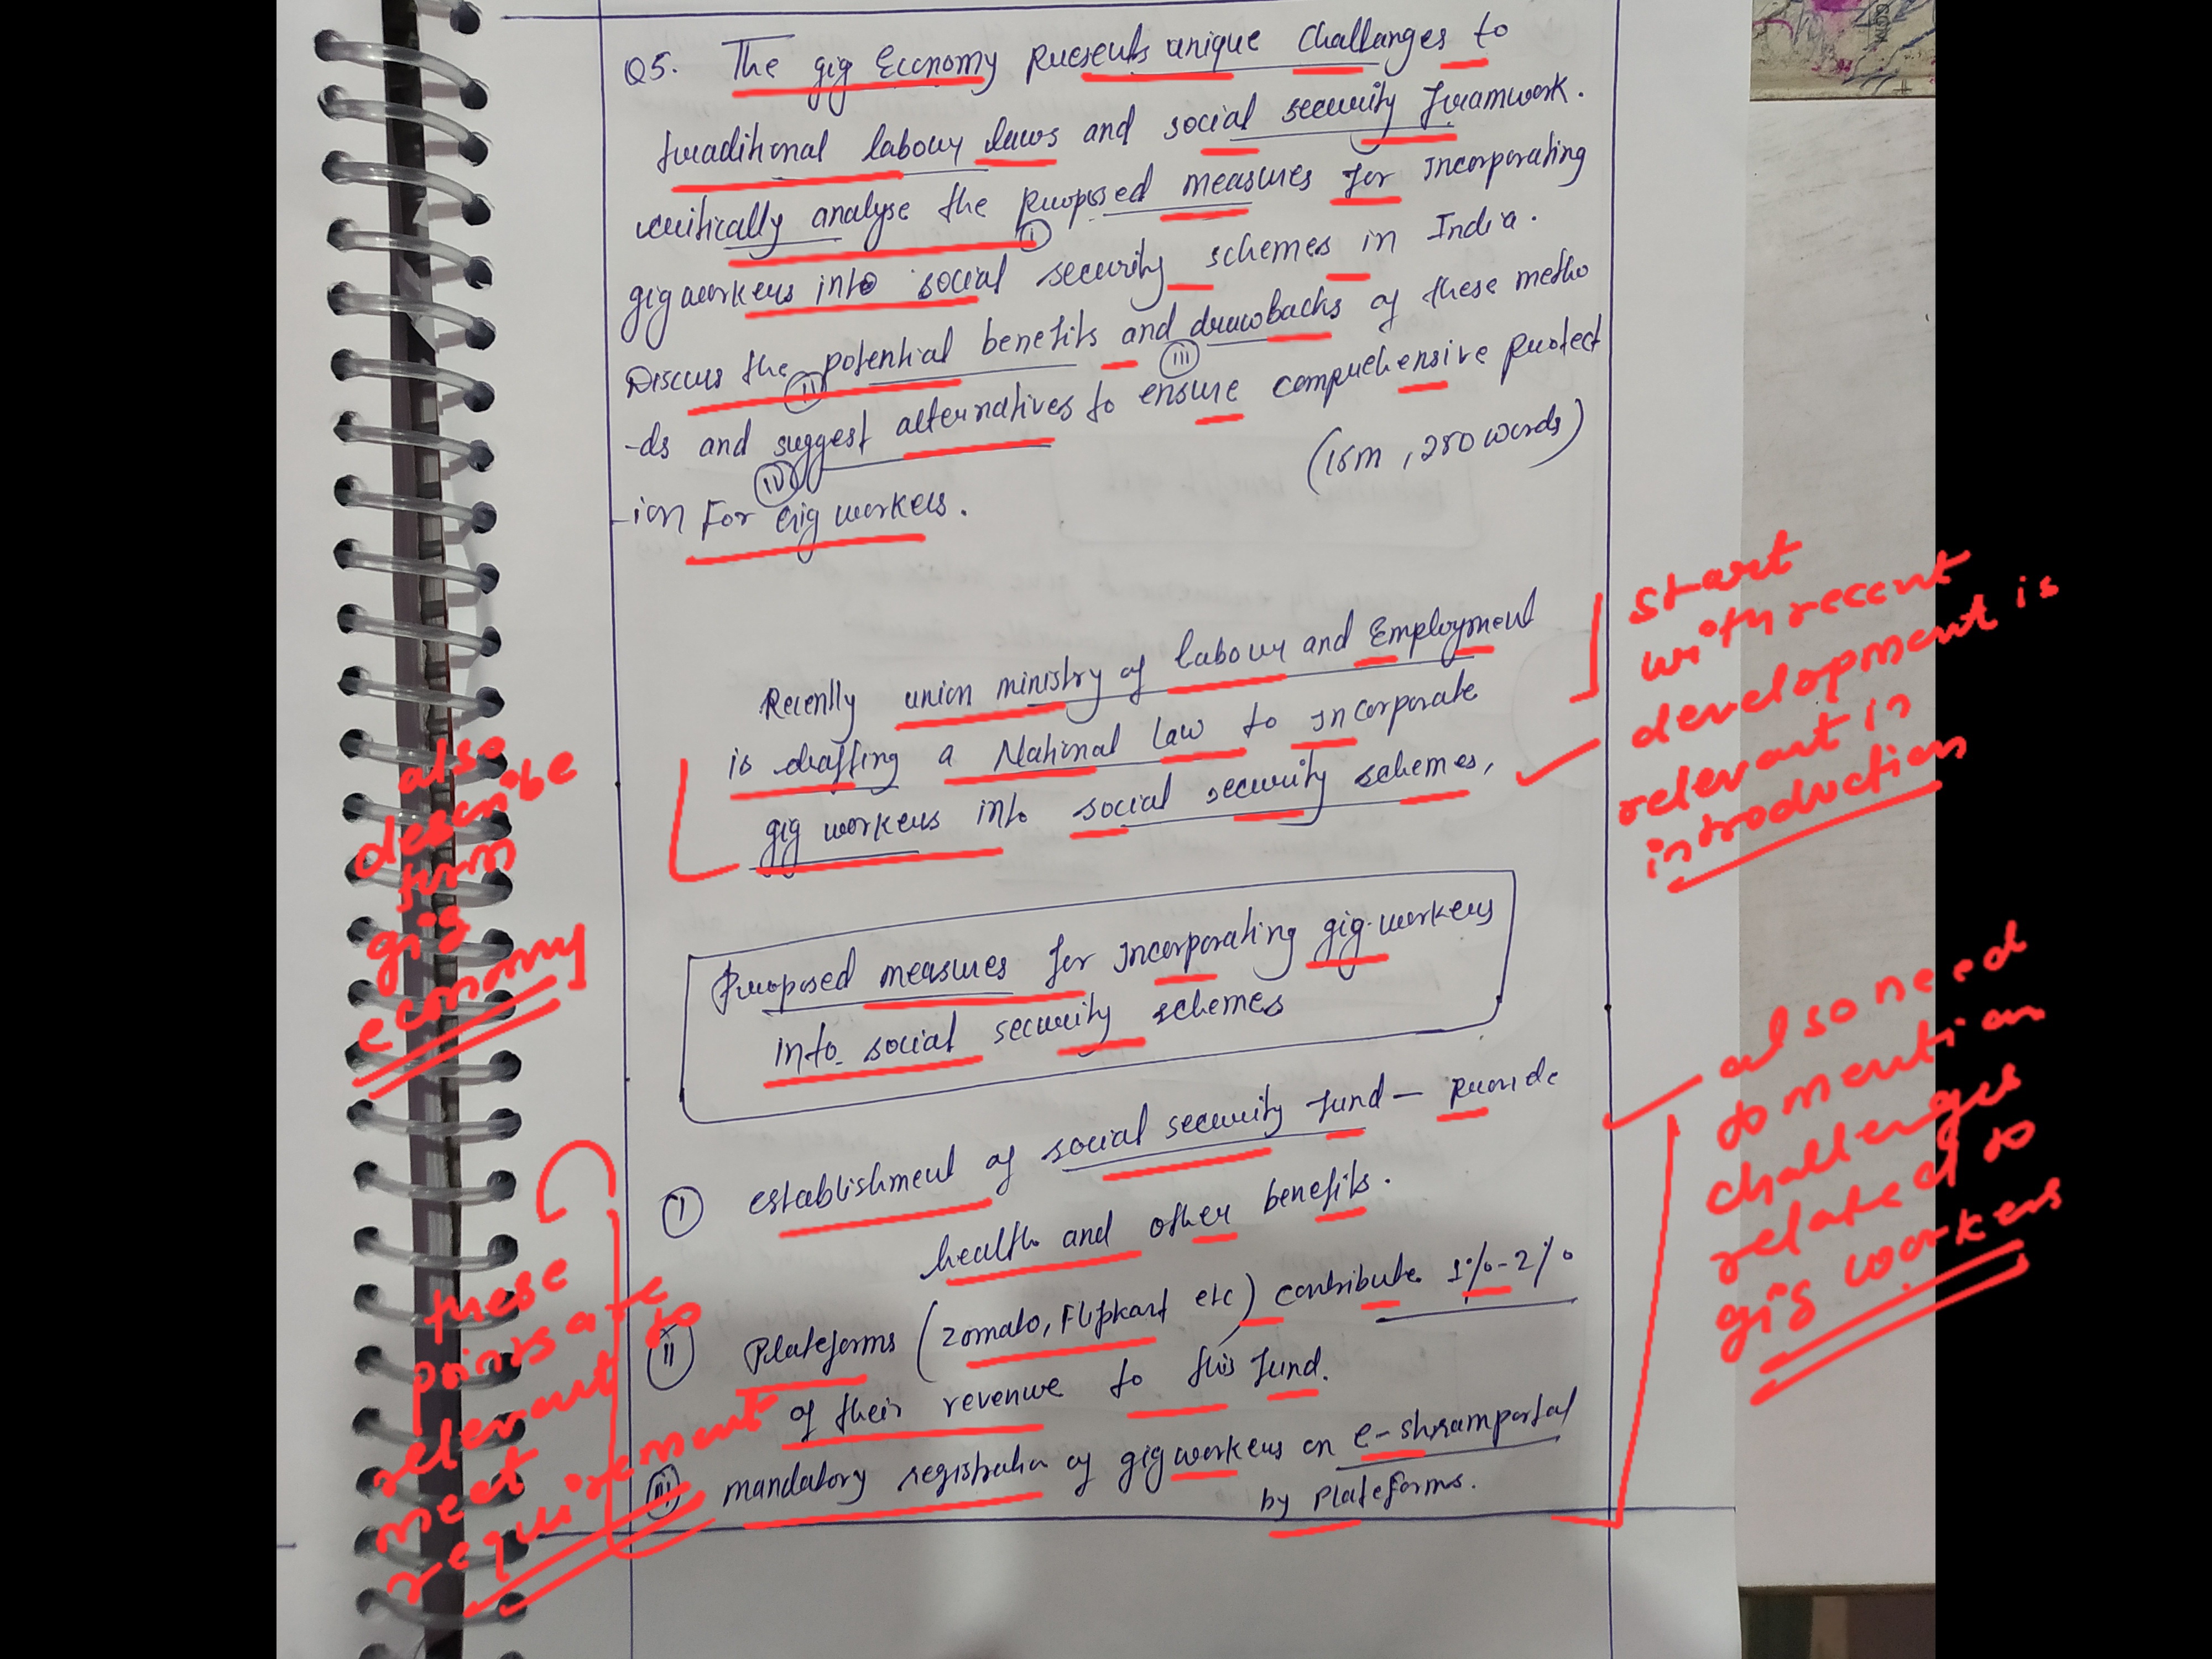 Q5. The gig Economy presents unique challanges to
traditional labour laws and social security framwork.
critically analyse the proposed measures for incorporating
gig workers into social security schemes in India.
Discuss the potential benefits and drawbacks of these metho
-ds and suggest alternatives to ensure comprehensive protect
-ion for gig workers.
(15m, 250 words)
I
II
III
IV
Recently union ministry of labour and Employment
is drafting a National law to incorporate
gig workers into social security schemes,
start
with recent
development is
relevant in
introduction
also
describe
term
gig
economy
Proposed measures for incorporating gig-workers
into social security schemes
also need
to mention
challenges
related to
gig workers
I establishment of social security fund — provide
health and other benefits.
II Plateforms (zomato, Flipkart etc) contribute 1%-2%
of their revenue to this fund.
III mandatory registration of gig workers on e-shramportal
by plateforms.
these
points are
relevant to
meet
requirement